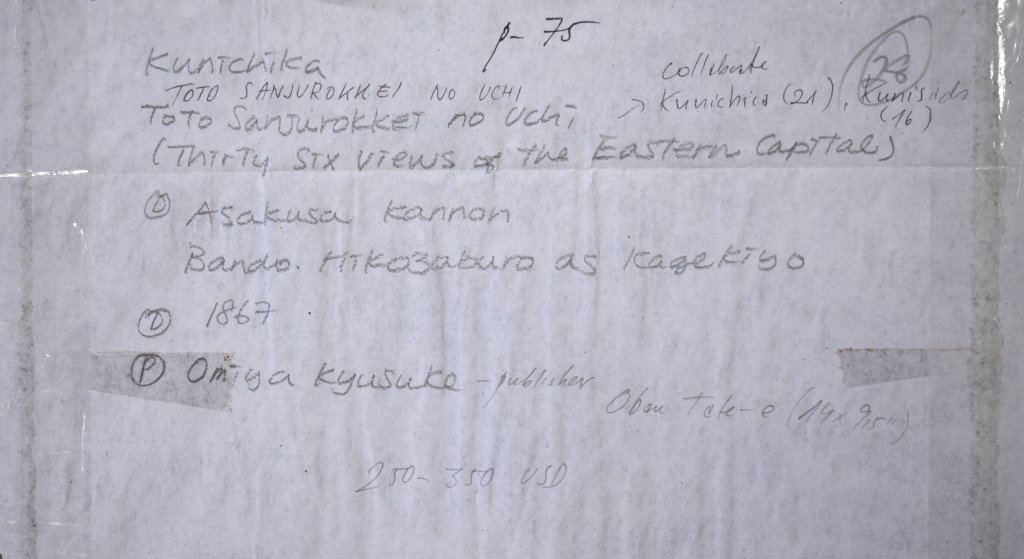 p- 75
Kunichika
TOTO SANJUROKKEI NO UCHI
collaborate
→ Kunichica (21), Kunisada (16)
28
Toto Sanjurokkei no Uchi
(Thirty Six Views of the Eastern Capital)
① Asakusa Kannon
Bando. Hikozaburo as Kagekiyo
1867
Ⓟ Omiya Kyusuke - publisher
Oban Tate-e (14 x 9,5")
250- 350 USD